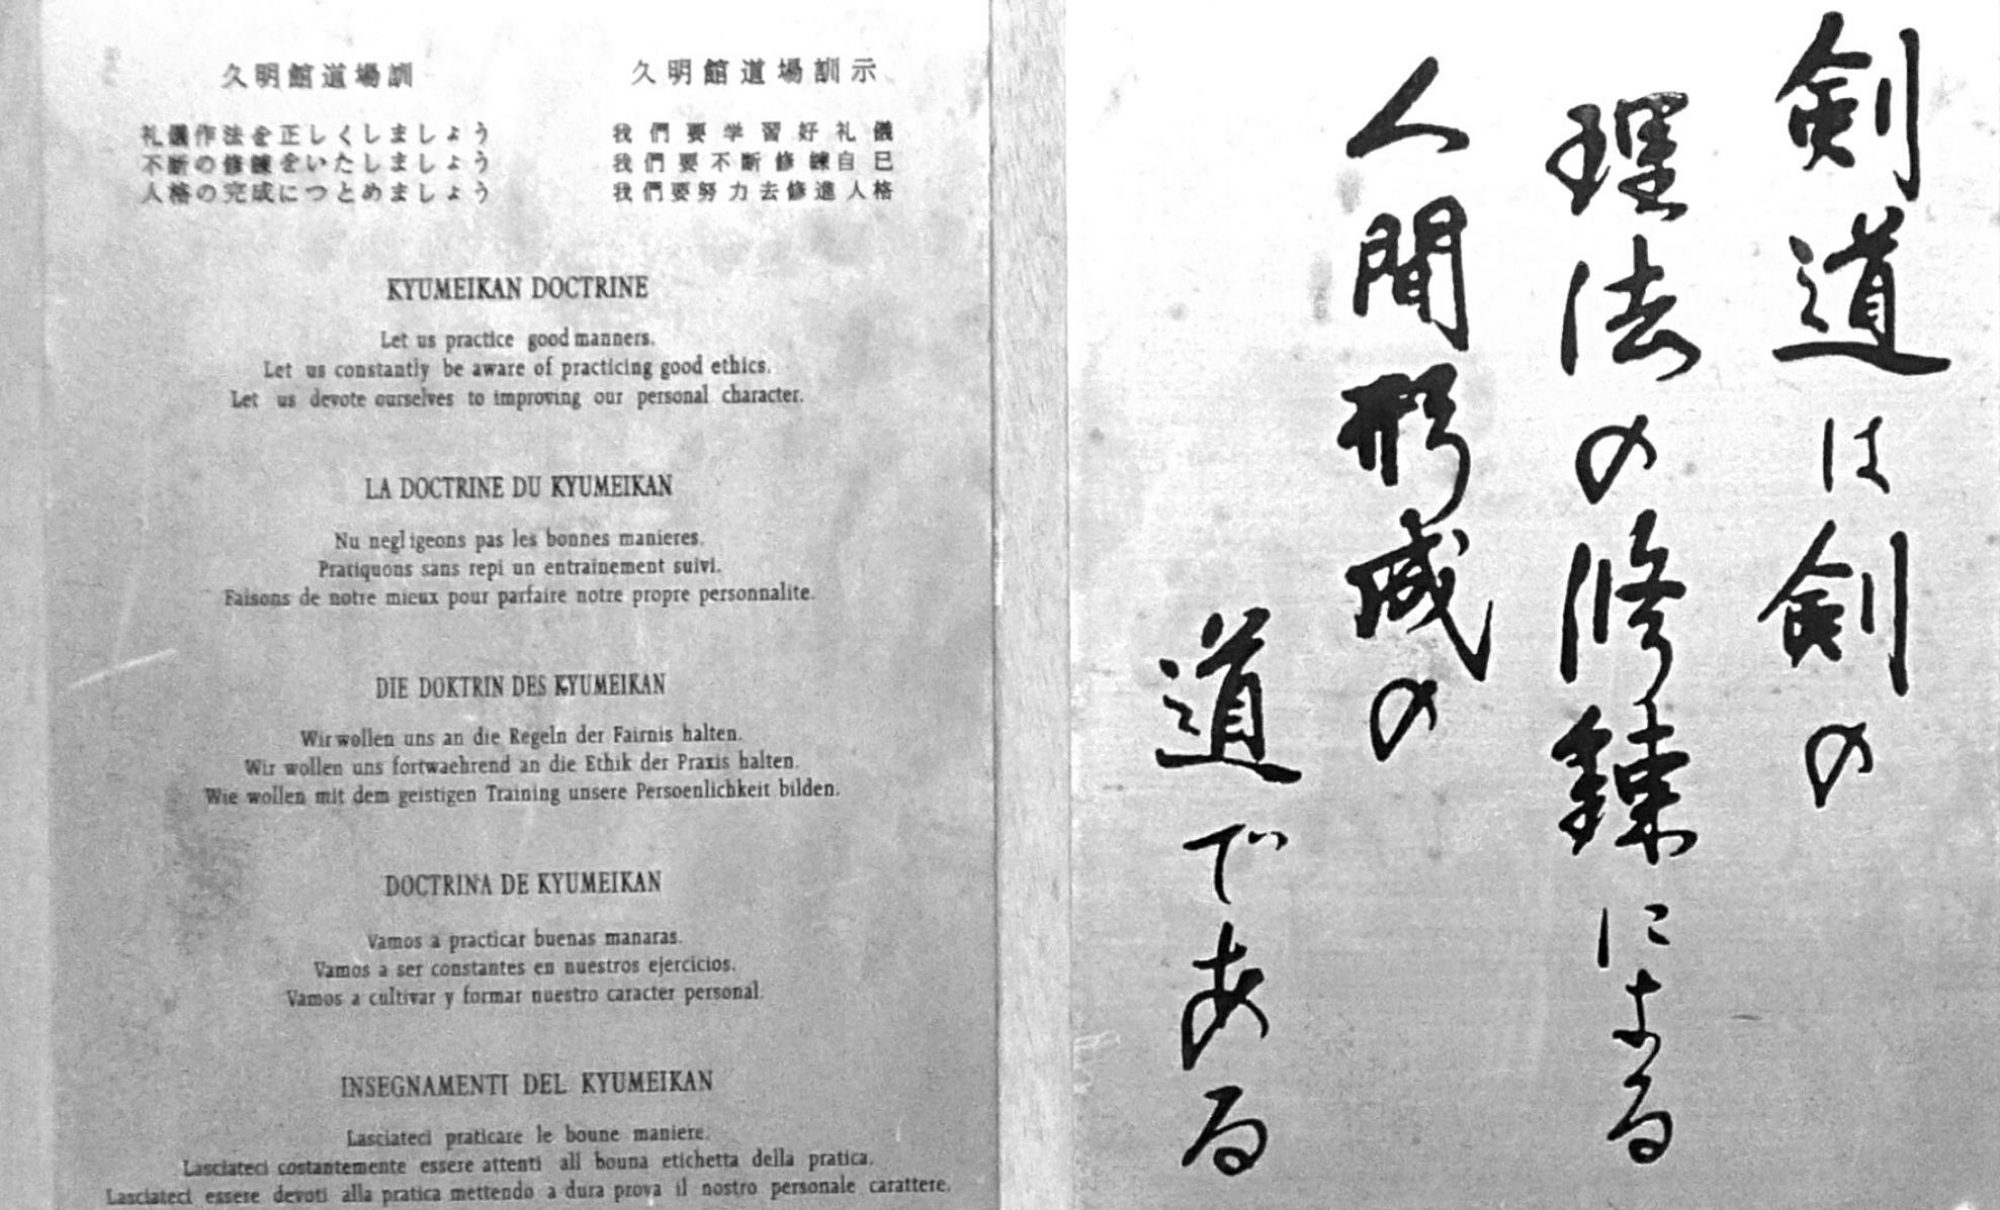 久明館道場訓
礼儀作法を正しくしましょう
不断の修練をいたしましょう
人格の完成につとめましょう
久明館道場訓示
我們要学習好礼儀
我們要不断修練自已
我們要努力去修進人格
KYUMEIKAN DOCTRINE
Let us practice good manners.
Let us constantly be aware of practicing good ethics.
Let us devote ourselves to improving our personal character.
LA DOCTRINE DU KYUMEIKAN
Nu negligeons pas les bonnes manieres.
Pratiquons sans repi un entrainement suivi.
Faisons de notre mieux pour parfaire notre propre personnalite.
DIE DOKTRIN DES KYUMEIKAN
Wir wollen uns an die Regeln der Fairnis halten.
Wir wollen uns fortwaehrend an die Ethik der Praxis halten.
Wie wollen mit dem geistigen Training unsere Persoenlichkeit bilden.
DOCTRINA DE KYUMEIKAN
Vamos a practicar buenas manaras.
Vamos a ser constantes en nuestros ejercicios.
Vamos a cultivar y formar nuestro caracter personal.
INSEGNAMENTI DEL KYUMEIKAN
Lasciateci praticare le boune maniere.
Lasciateci costantemente essere attenti all bouna etichetta della pratica.
Lasciateci essere devoti alla pratica mettendo a dura prova il nostro personale carattere.
剣道は剣の
理法の修錬による
人間形成の
道である